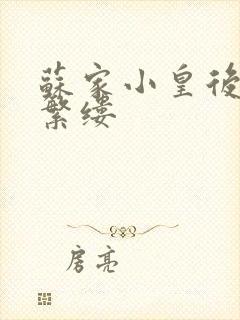 蘇家小皇後
繁縷
房亮